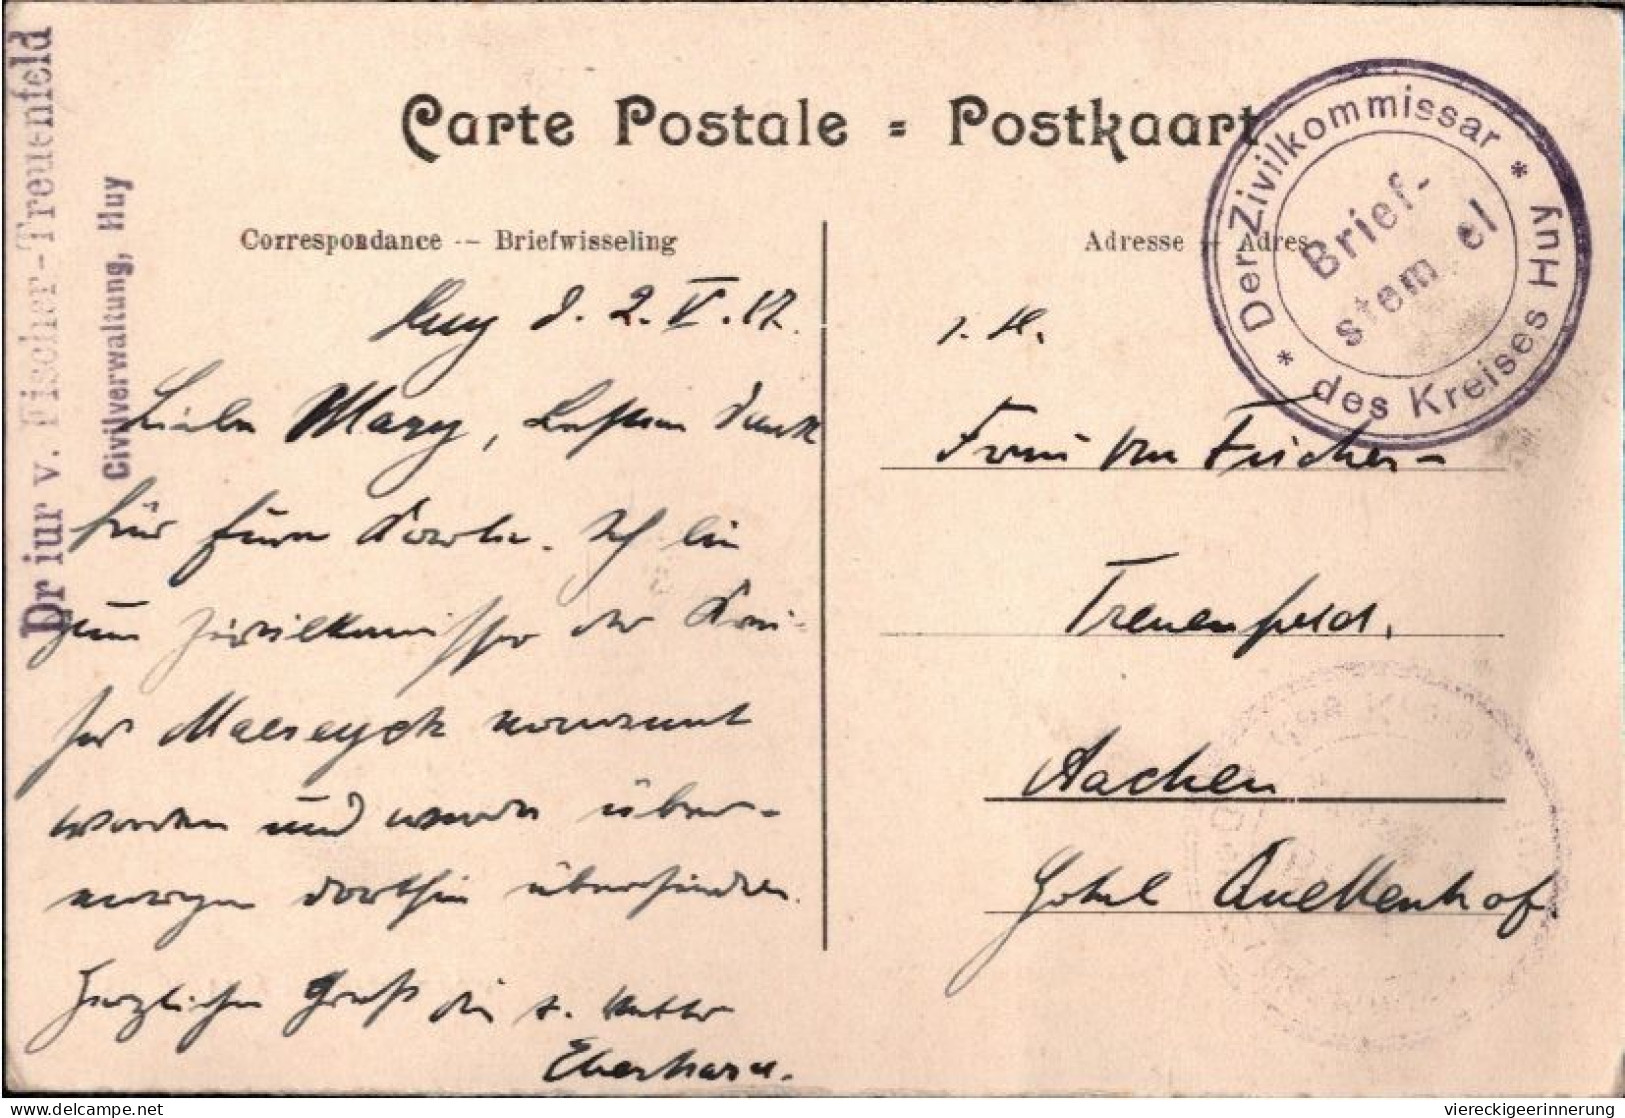 Dr iur v. Fischer-Treuenfeld
Civilverwaltung, Huy
Carte Postale = Postkaart
Correspondance -- Briefwisseling
Adresse -- Adres
* Der Zivilkommissar * des Kreises Huy
Brief-
stem el
Huy d. 2. V. 17.
Liebe Mary, besten Dank
für Eure Karte. Ich bin
zum Zivilkommissar der Krei-
ses Maeseyck ernannt
worden und werde über-
morgen dorthin übersiedeln.
Herzlichen Gruß Dir u. Mutter
Eberhard.
Frau von Fischer-
Treuenfeld.
Aachen
Hotel Quellenhof
viereckigeerinnerung